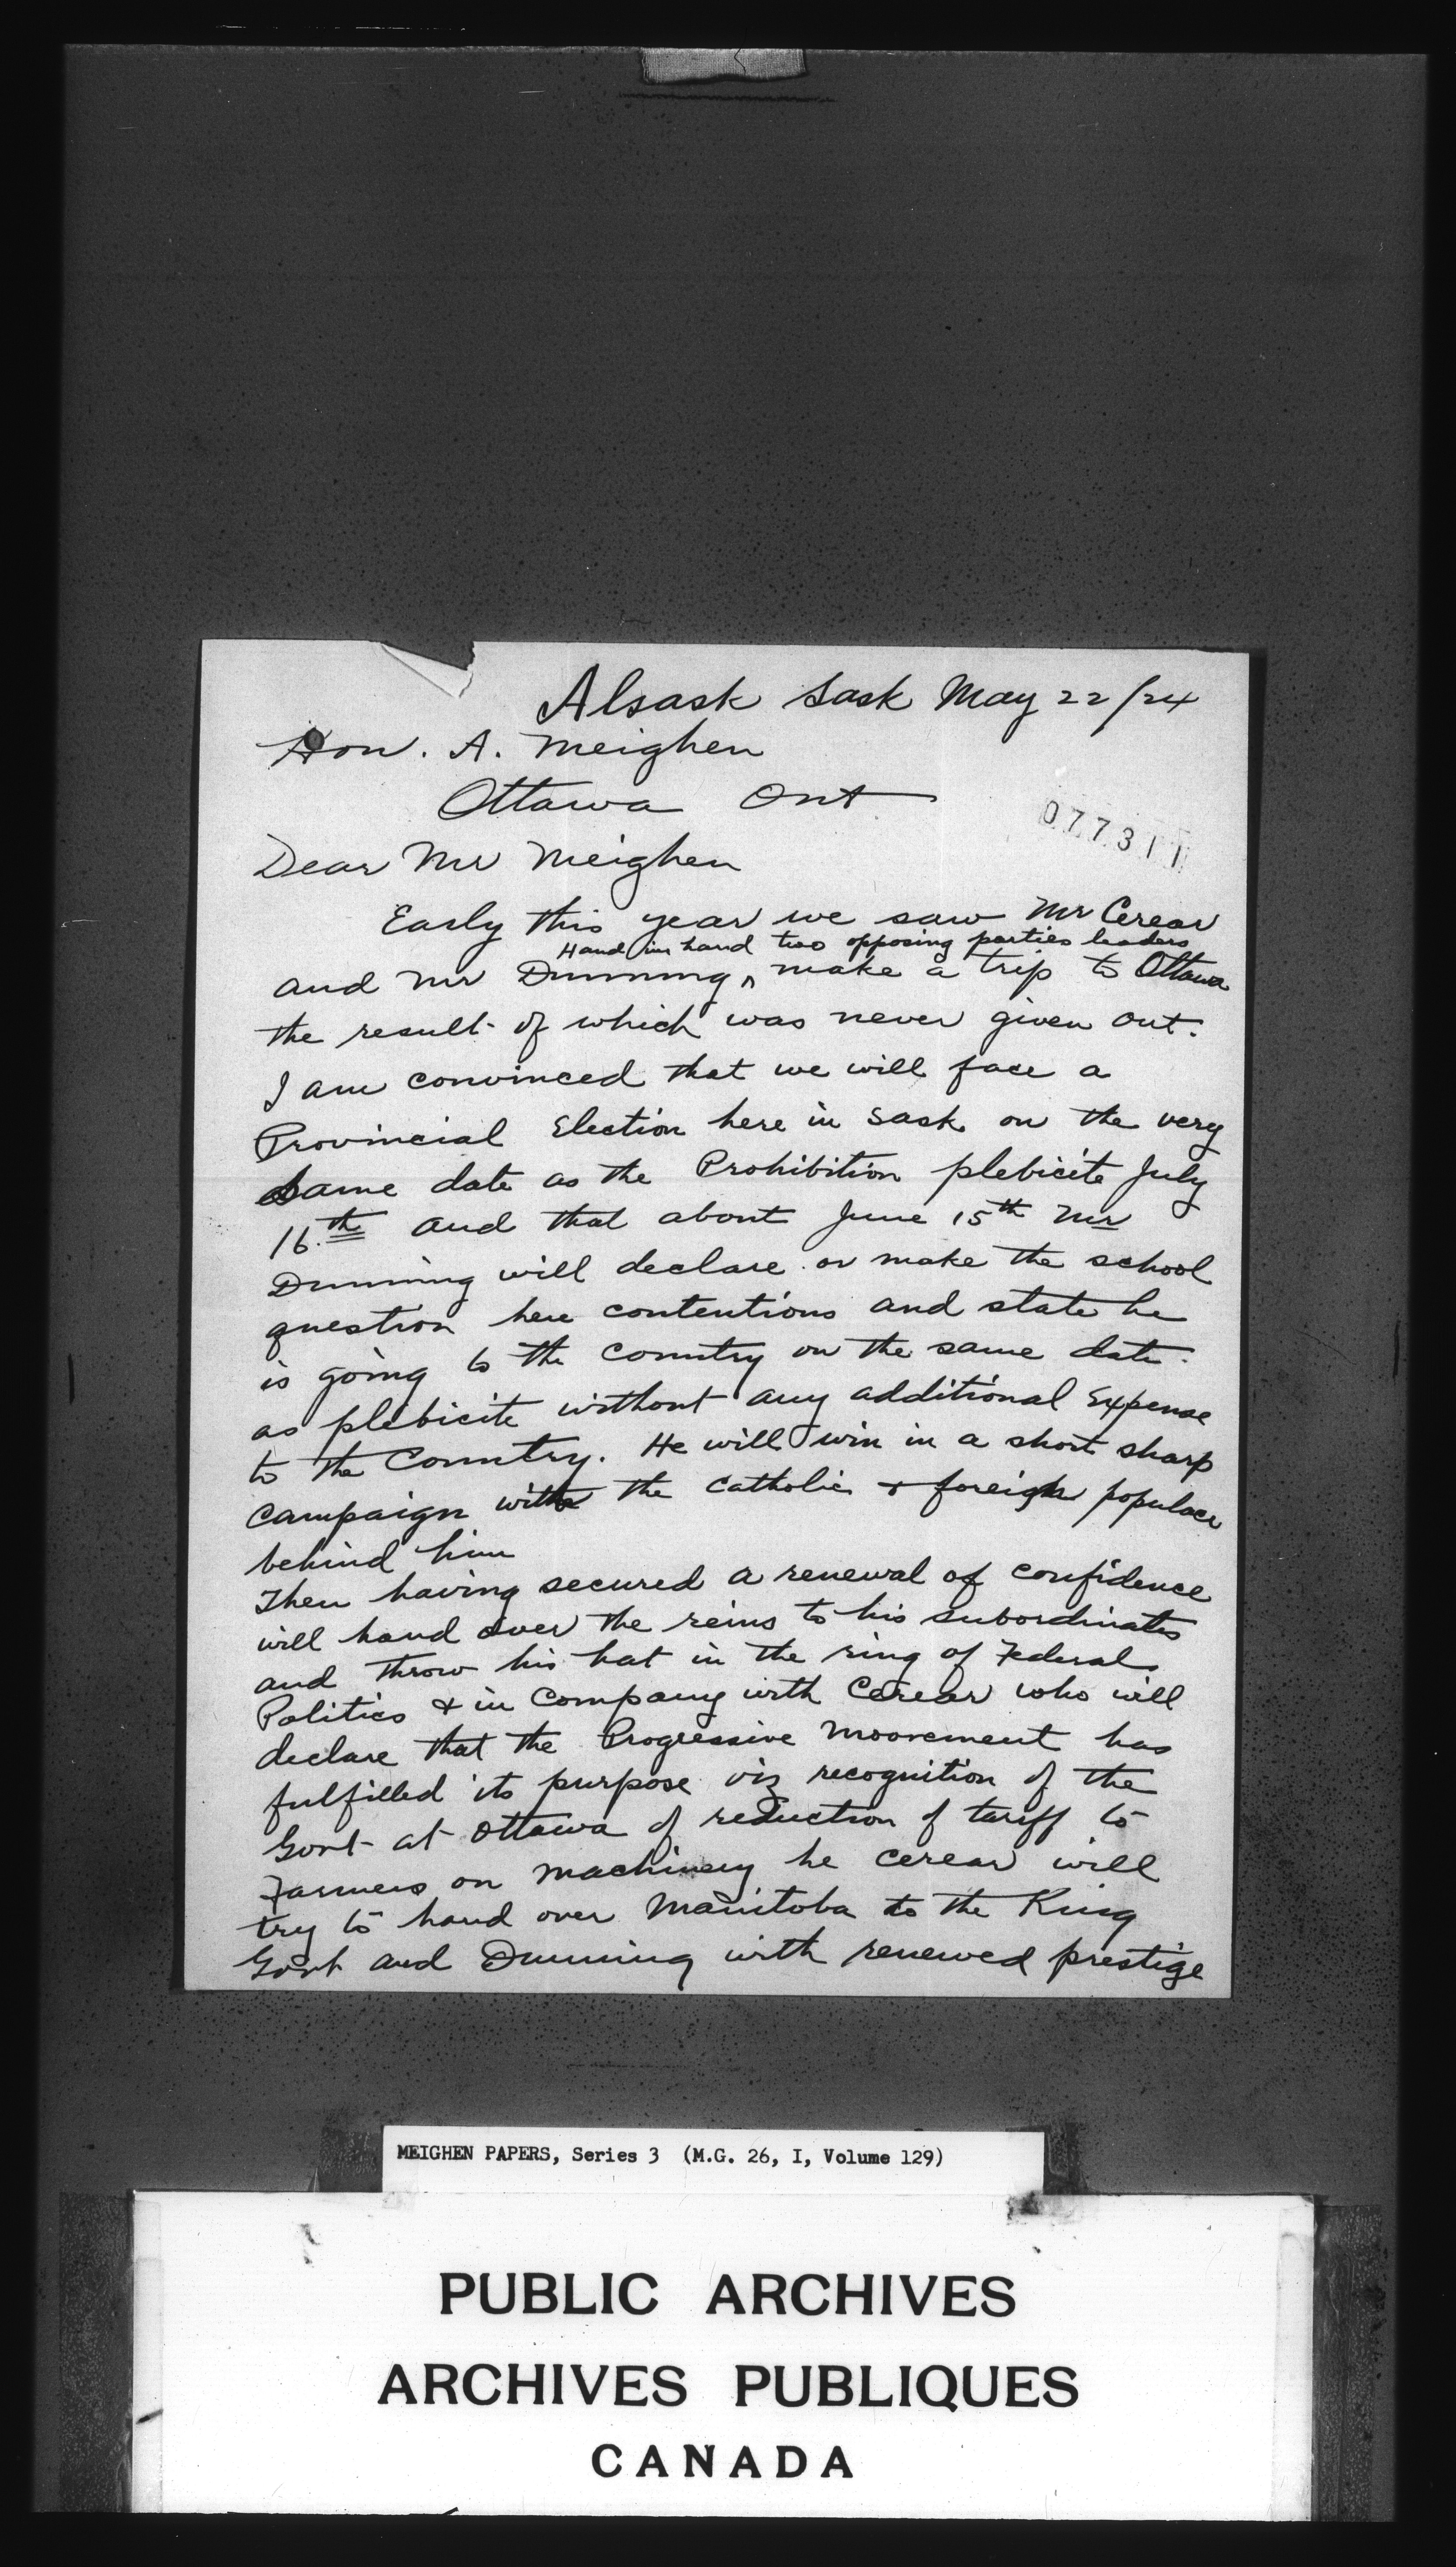 Alsask Sask May 22/24
Hon. A. Meighen
Ottawa Ont
077311
Dear Mr Meighen
Early this year we saw Mr Cerear
Hand in hand two opposing parties leaders
and Mr Dunning ^ make a trip to Ottawa
the result of which was never given out.
I am convinced that we will face a
Provincial Election here in Sask. on the very
same date as the Prohibition plebicite July
16.th and that about June 15th Mr
Dunning will declare or make the school
question here contentions and state he
is going to the country on the same date.
as plebicite without any additional Expense
to the Country. He will win in a short sharp
campaign with the Catholic & foreign populace
behind him
Then having secured a renewal of confidence
will hand over the reins to his subordinates
and throw his hat in the ring of Federal
Politics & in company with Cerear who will
declare that the Progressive moovement has
fulfilled its purpose viz recognition of the
Govt at Ottawa of reduction of tariff to
Farmers on machinery he Cerear will
try to hand over Manitoba to the King
Govt and Dunning with renewed prestige
MEIGHEN PAPERS, Series 3 (M.G. 26, I, Volume 129)
PUBLIC ARCHIVES
ARCHIVES PUBLIQUES
CANADA